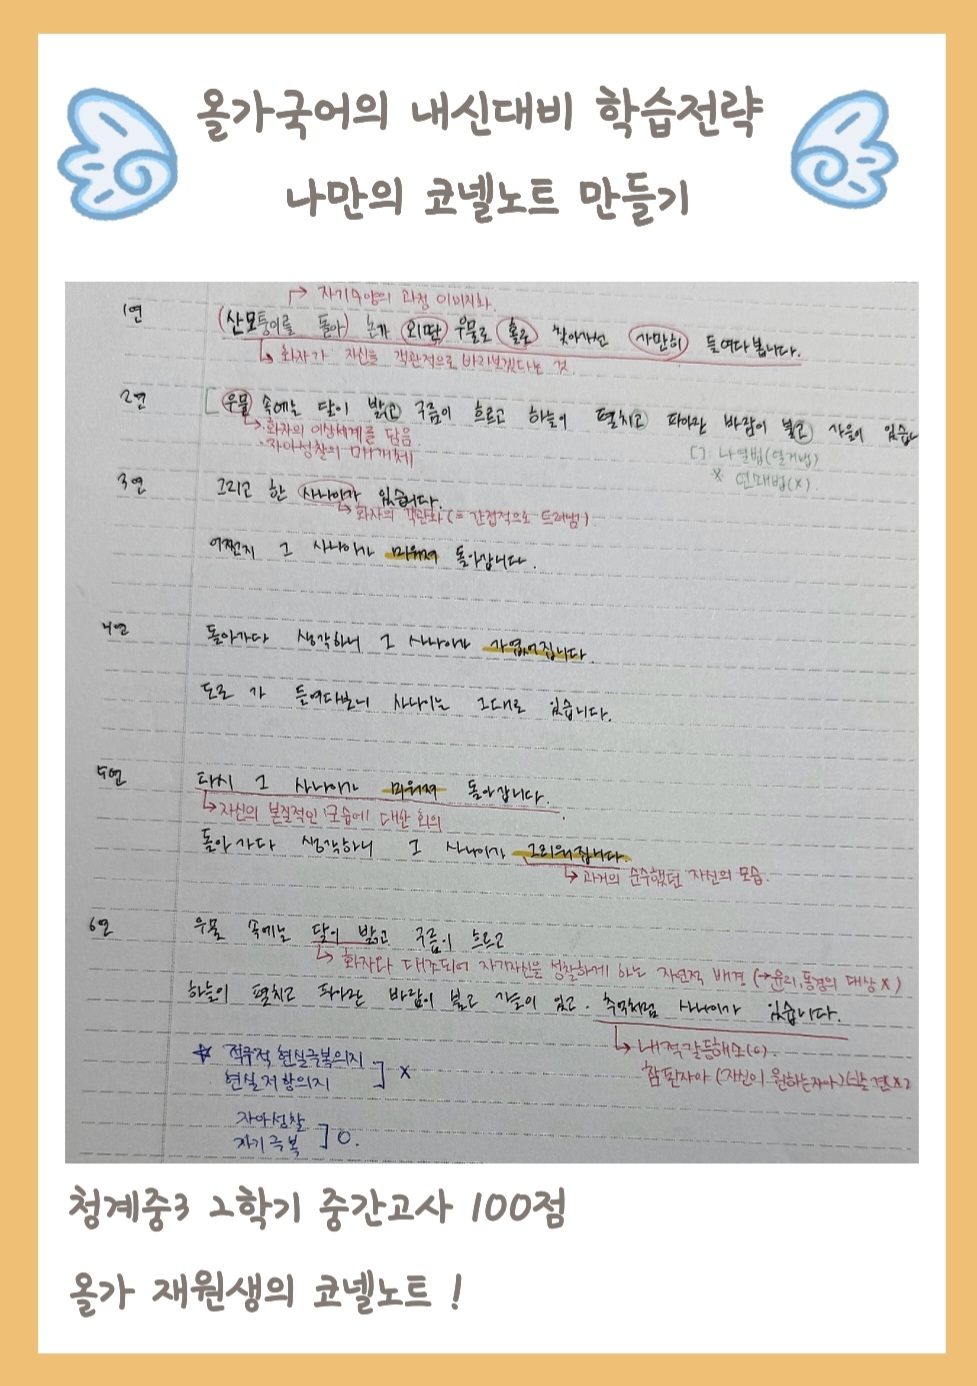 올가국어의 내신대비 학습전략
나만의 코넬노트 만들기
→ 자기수양의 과정 이미지화
1연 (산모퉁이를 돌아) 논가 외딴 우물로 홀로 찾아가선 가만히 들여다봅니다.
↳ 화자가 자신을 객관적으로 바라보겠다는 것.
2연 [우물 속에는 달이 밝고 구름이 흐르고 하늘이 펼치고 파아란 바람이 불고 가을이 있습니
↳ 화자의 이상세계를 담음
· 자아성찰의 매개체
[ ] 나열법(열거법)
* 연쇄법(x).
3연 그리고 한 사나이가 있습니다.
↳ 화자의 객관화 (= 간접적으로 드러냄)
어쩐지 그 사나이가 미워져 돌아갑니다.
4연 돌아가다 생각하니 그 사나이가 가엾어집니다.
도로 가 들여다보니 사나이는 그대로 있습니다.
5연 다시 그 사나이가 미워져 돌아갑니다.
↳ 자신의 본질적인 모습에 대한 회의
돌아가다 생각하니 그 사나이가 그리워집니다.
↳ 과거의 순수했던 자신의 모습.
6연 우물 속에는 달이 밝고 구름이 흐르고
↳ 화자와 대조되어 자기자신을 성찰하게 하는 자연적 배경 (→윤리,동경의 대상 x)
하늘이 펼치고 파아란 바람이 불고 가을이 있고. 추억처럼 사나이가 있습니다.
↳ 내적갈등해소(o).
참된자아 (자신이 원하는자아)
☆ 적극적 현실극복의지
현실저항의지 ] x
자아성찰
자기극복 ] O.
청계중3 2학기 중간고사 100점
올가 재원생의 코넬노트 !